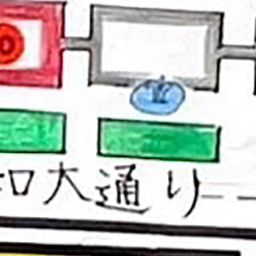 口大通り